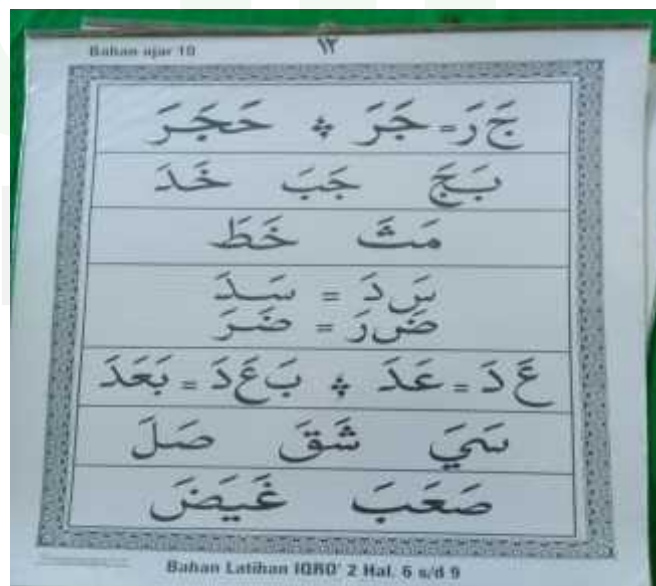 Bahan ajar 10 ١٢
جَ رَ = جَرَ ⁘ حَجَرَ
بَجَ جَبَ خَدَ
مَثَ خَطَ
سَ دَ = سَدَ
ضَ رَ = ضَرَ
عَ دَ = عَدَ ⁘ بَ عَ دَ = بَعَدَ
سَيَ شَقَ صَلَ
صَعَبَ غَيَضَ
Bahan Latihan IQRO' 2 Hal. 6 s/d 9